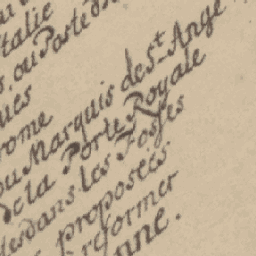 talie
ou Porte
ues
rome
ou Marquis de St. Ange
de la Porte Royale
dans les Fosses
proposées
reformer
nne.